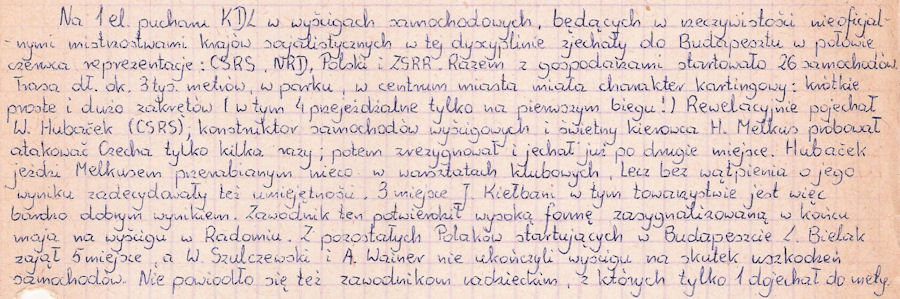 Na 1 el. pucharu KDL w wyścigach samochodowych, będących w rzeczywistości nieoficjal-
-nymi mistrzostwami krajów socjalistycznych w tej dyscyplinie zjechały do Budapesztu w połowie
czerwca reprezentacje: CSRS, NRD, Polski i ZSRR. Razem z gospodarzami startowało 26 samochodów.
Trasa dł. ok. 3 tys. metrów, w parku, w centrum miasta miała charakter kartingowy: krótkie
proste i dużo zakrętów (w tym 4 przejeżdżalne tylko na pierwszym biegu!) Rewelacyjnie pojechał
W. Hubaček (CSRS); konstruktor samochodów wyścigowych i świetny kierowca H. Melkus próbował
atakować Czecha tylko kilka razy; potem zrezygnował i jechał już po drugie miejsce. Hubaček
jeździ Melkusem przerabianym nieco w warsztatach klubowych, lecz bez wątpienia o jego
wyniku zadecydowały też umiejętności. 3 miejsce J. Kiełbani w tym towarzystwie jest więc
bardzo dobrym wynikiem. Zawodnik ten potwierdził wysoką formę zasygnalizowaną w końcu
maja na wyścigu w Radomiu. Z pozostałych Polaków startujących w Budapeszcie L. Bielak
zajął 5 miejsce, a W. Szulczewski i A. Wainer nie ukończyli wyścigu na skutek uszkodzeń
samochodów. Nie powiodło się też zawodnikom radzieckim, z których tylko 1 dojechał do mety.